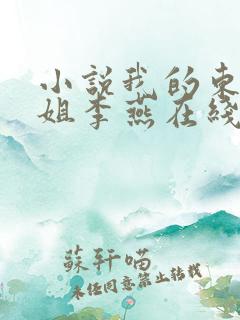 小説我的東
姐李燕在綫
蘇軒喵
未經同意禁止轉載